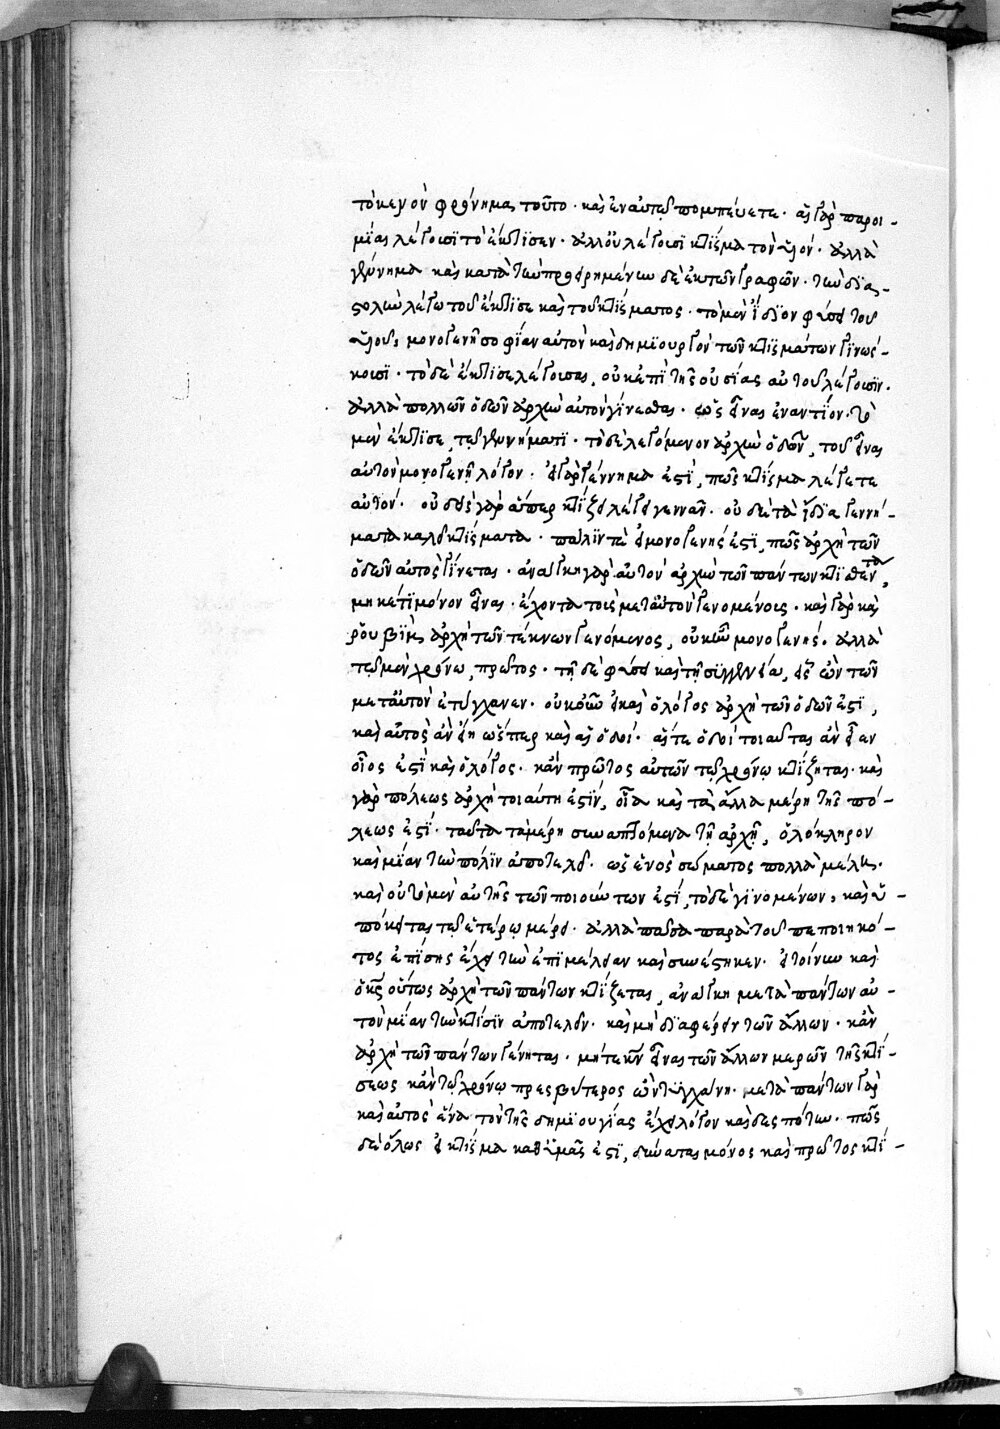 τὸ κενὸν φρόνημα τοῦτο· καὶ ἐν αὐτῷ πομπεύετε· αἱ γὰρ παροι-
μίαι λέγουσι τὸ ἔκτισεν· ἀλλ' οὐ λέγουσι κτίσμα τὸν υἱόν· ἀλλὰ
γέννημα καὶ κατὰ τὴν προειρημένην δὲ ἐκ τῶν γραφῶν· τὴν δια-
στολὴν λέγω τοῦ ἔκτισε καὶ τοῦ κτίσματος· τὸ μὲν ἴδιον φύσει τοῦ
υἱοῦ, μονογενῆ σοφίαν αὐτὸν καὶ δημιουργὸν τῶν κτισμάτων γινώς-
κουσι· τὸ δὲ ἔκτισε λέγουσαι, οὐκ ἐπὶ τῆς οὐσίας αὐτοῦ λέγουσιν·
ἀλλὰ πολλῶν ὁδῶν ἀρχὴν αὐτὸν γίνεσθαι· ὡς εἶναι ἐναντίον· τὸ
μὲν ἔκτισε, τῷ γεννήματι· τὸ δὲ λεγόμενον ἀρχὴν ὁδῶν, τοῦ εἶναι
αὐτὸν μονογενῆ λόγον· εἰ γὰρ γέννημα ἐστὶ, πῶς κτίσμα λέγετε
αὐτόν· οὐδεὶς γὰρ ἅπερ κτίζει λέγει γεννᾶν· οὐδὲ τὰ ἴδια γεννή-
ματα καλεῖ κτίσματα· πάλιν τε εἰ μονογενής ἐστι, πῶς ἀρχὴ τῶν
ὁδῶν αὐτὸς γίνεται· ἀνάγκη γὰρ αὐτὸν ἀρχὴν τῶν πάντων κτισθέντα,
μηκέτι μόνον εἶναι· ἔχοντα τοὺς μετ' αὐτὸν γενομένους· καὶ γὰρ καὶ
ῥουβὶμ ἀρχὴ τῶν τέκνων γενόμενος, οὐκ ἦν μονογενής· ἀλλὰ
τῷ μὲν χρόνῳ, πρῶτος· τῇ δὲ φύσει καὶ τῇ συγγενείᾳ, εἷς ὢν τῶν
μετ' αὐτὸν ἐτύγχανεν· οὐκοῦν εἰ καὶ ὁ λόγος ἀρχὴ τῶν ὁδῶν ἐστι,
καὶ αὐτὸς ἂν εἴη ὥσπερ καὶ αἱ ὁδοί· αἵ τε ὁδοὶ τοιαῦται ἂν εἶεν
οἷος ἐστὶ καὶ ὁ λόγος· κἂν πρῶτος αὐτῶν τῷ χρόνῳ κτίζηται· καὶ
γὰρ πόλεως ἀρχὴ τοιαύτη ἐστίν, οἷα καὶ τὰ ἄλλα μέρη τῆς πό-
λεως ἐστί· ταῦτα τὰ μέρη συναπτόμενα τῇ ἀρχῇ, ὁλόκληρον
καὶ μίαν τὴν πόλιν ἀποτελεῖ· ὡς ἑνὸς σώματος πολλὰ μέλη·
καὶ οὐ τὸ μὲν αὐτῆς τῶν ποιούντων ἐστί, τὸ δὲ γινομένων, καὶ ὑ-
πόκειται τῷ ἑτέρῳ μέρει· ἀλλὰ πᾶσα παρὰ τοῦ πεποιηκό-
τος ἐπίσης ἔχει τὴν ἐπιμέλειαν καὶ συνέστηκεν· εἰ τοίνυν καὶ
ὁ κύριος οὕτως ἀρχὴ τῶν πάντων κτίζεται, ἀνάγκη μετὰ πάντων αὐ-
τὸν μίαν τὴν κτίσιν ἀποτελεῖν· καὶ μὴ διαφέρειν τῶν ἄλλων· κἂν
ἀρχὴ τῶν πάντων γένηται· μήτε κύριον εἶναι τῶν ἄλλων μερῶν τῆς κτί-
σεως κἂν τῷ χρόνῳ πρεσβύτερος ὢν τυγχάνῃ· μετὰ πάντων γὰρ
καὶ αὐτὸς ἕνα τὸν τῆς δημιουργίας ἔχει λόγον καὶ δεσπότην· πῶς
δὲ ὅλως εἰ κτίσμα καθ' ὑμᾶς ἐστι, δύναται μόνος καὶ πρῶτος κτί-